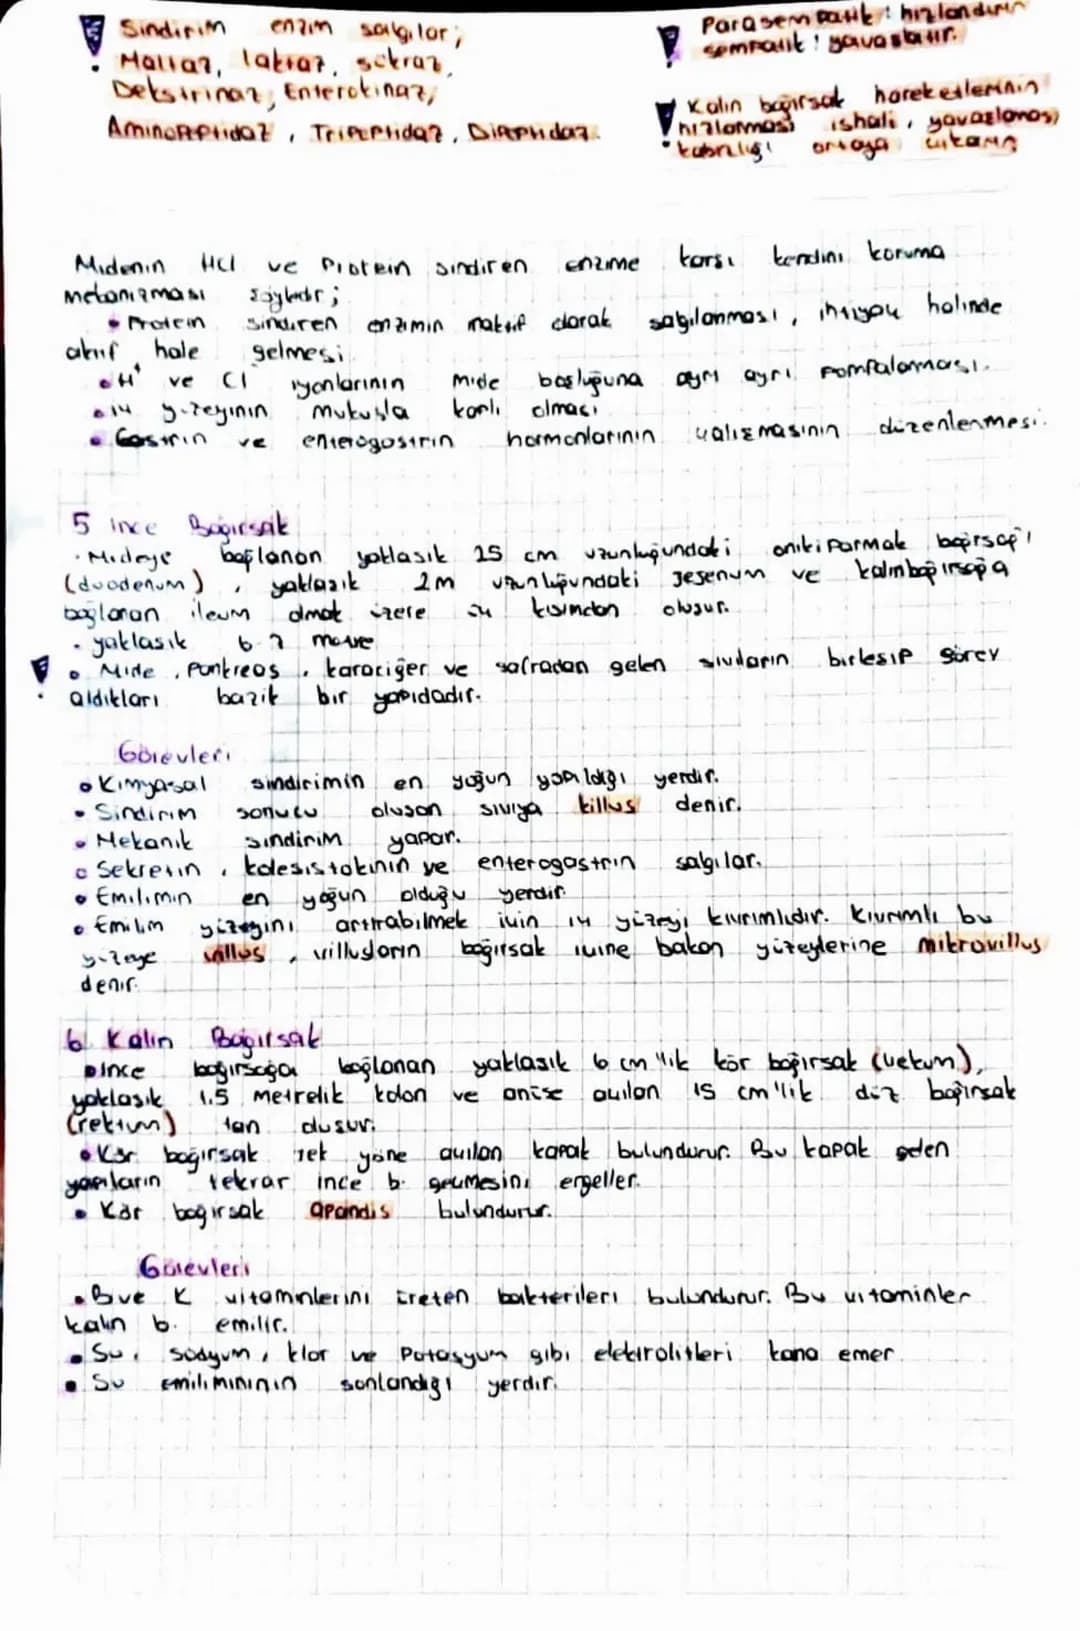 Sindirim enzim salgılar;
Maltaz, laktaz, sükraz,
Dekstrinaz, Enterokinaz,
Aminopeptidaz, Tripeptidaz, Dipeptidaz.
Parasempatik: hızlandırır
sempatik: yavaşlatır.
Kalın bağırsak hareketlerinin
hızlanması ishali, yavaşlaması
kabızlığı ortaya çıkarır
Midenin HCl ve Protein sindiren enzime karşı kendini koruma
mekanizması şöyledir;
• Protein sindiren enzimin inaktif olarak salgılanması, ihtiyaç halinde
aktif hale gelmesi
• H⁺ ve Cl⁻ iyonlarının mide boşluğuna ayrı ayrı pompalanması.
• iç yüzeyinin mukusla kaplı olması
• Gastrin ve enterogastrin hormonlarının çalışmasının düzenlenmesi.
5 ince Bağırsak
• Mideye bağlanan yaklaşık 25 cm uzunluğundaki onikiparmak bağırsağı
(duodenum), yaklaşık 2m uzunluğundaki jejenum ve kalınbağırsağa
bağlanan ileum olmak üzere üç kısımdan oluşur.
• yaklaşık 6-7 metre
• Mide, Pankreas, karaciğer ve safradan gelen sıvıların birleşip görev
aldıkları bazik bir yapıdadır.
Görevleri
• Kimyasal sindirimin en yoğun yapıldığı yerdir.
• Sindirim sonucu oluşan sıvıya killus denir.
• Mekanik sindirim yapar.
• Sekretin, kolesistokinin ve enterogastrin salgılar.
• Emilimin en yoğun olduğu yerdir
• Emilim yüzeyini artırabilmek için iç yüzeyi kıvrımlıdır. Kıvrımlı bu
yüzeye villus, villusların bağırsak içine bakan yüzeylerine mikrovillus
denir.
6 Kalın Bağırsak
• İnce bağırsağa bağlanan yaklaşık 6 cm'lik kör bağırsak (çekum),
yaklaşık 1.5 metrelik kolon ve anüse açılan 15 cm'lik düz bağırsak
(rektum) tan oluşur.
• Kör bağırsak tek yöne açılan kapak bulundurur. Bu kapak gelen
yapıların tekrar ince b. geçmesini engeller.
• Kör bağırsak apandis bulundurur.
Görevleri
• B ve K vitaminlerini üreten bakterileri bulundurur. Bu vitaminler
kalın b. emilir.
• Su, sodyum, klor ve Potasyum gibi elektrolitleri kana emer
• Su emilimininin sonlandığı yerdir.